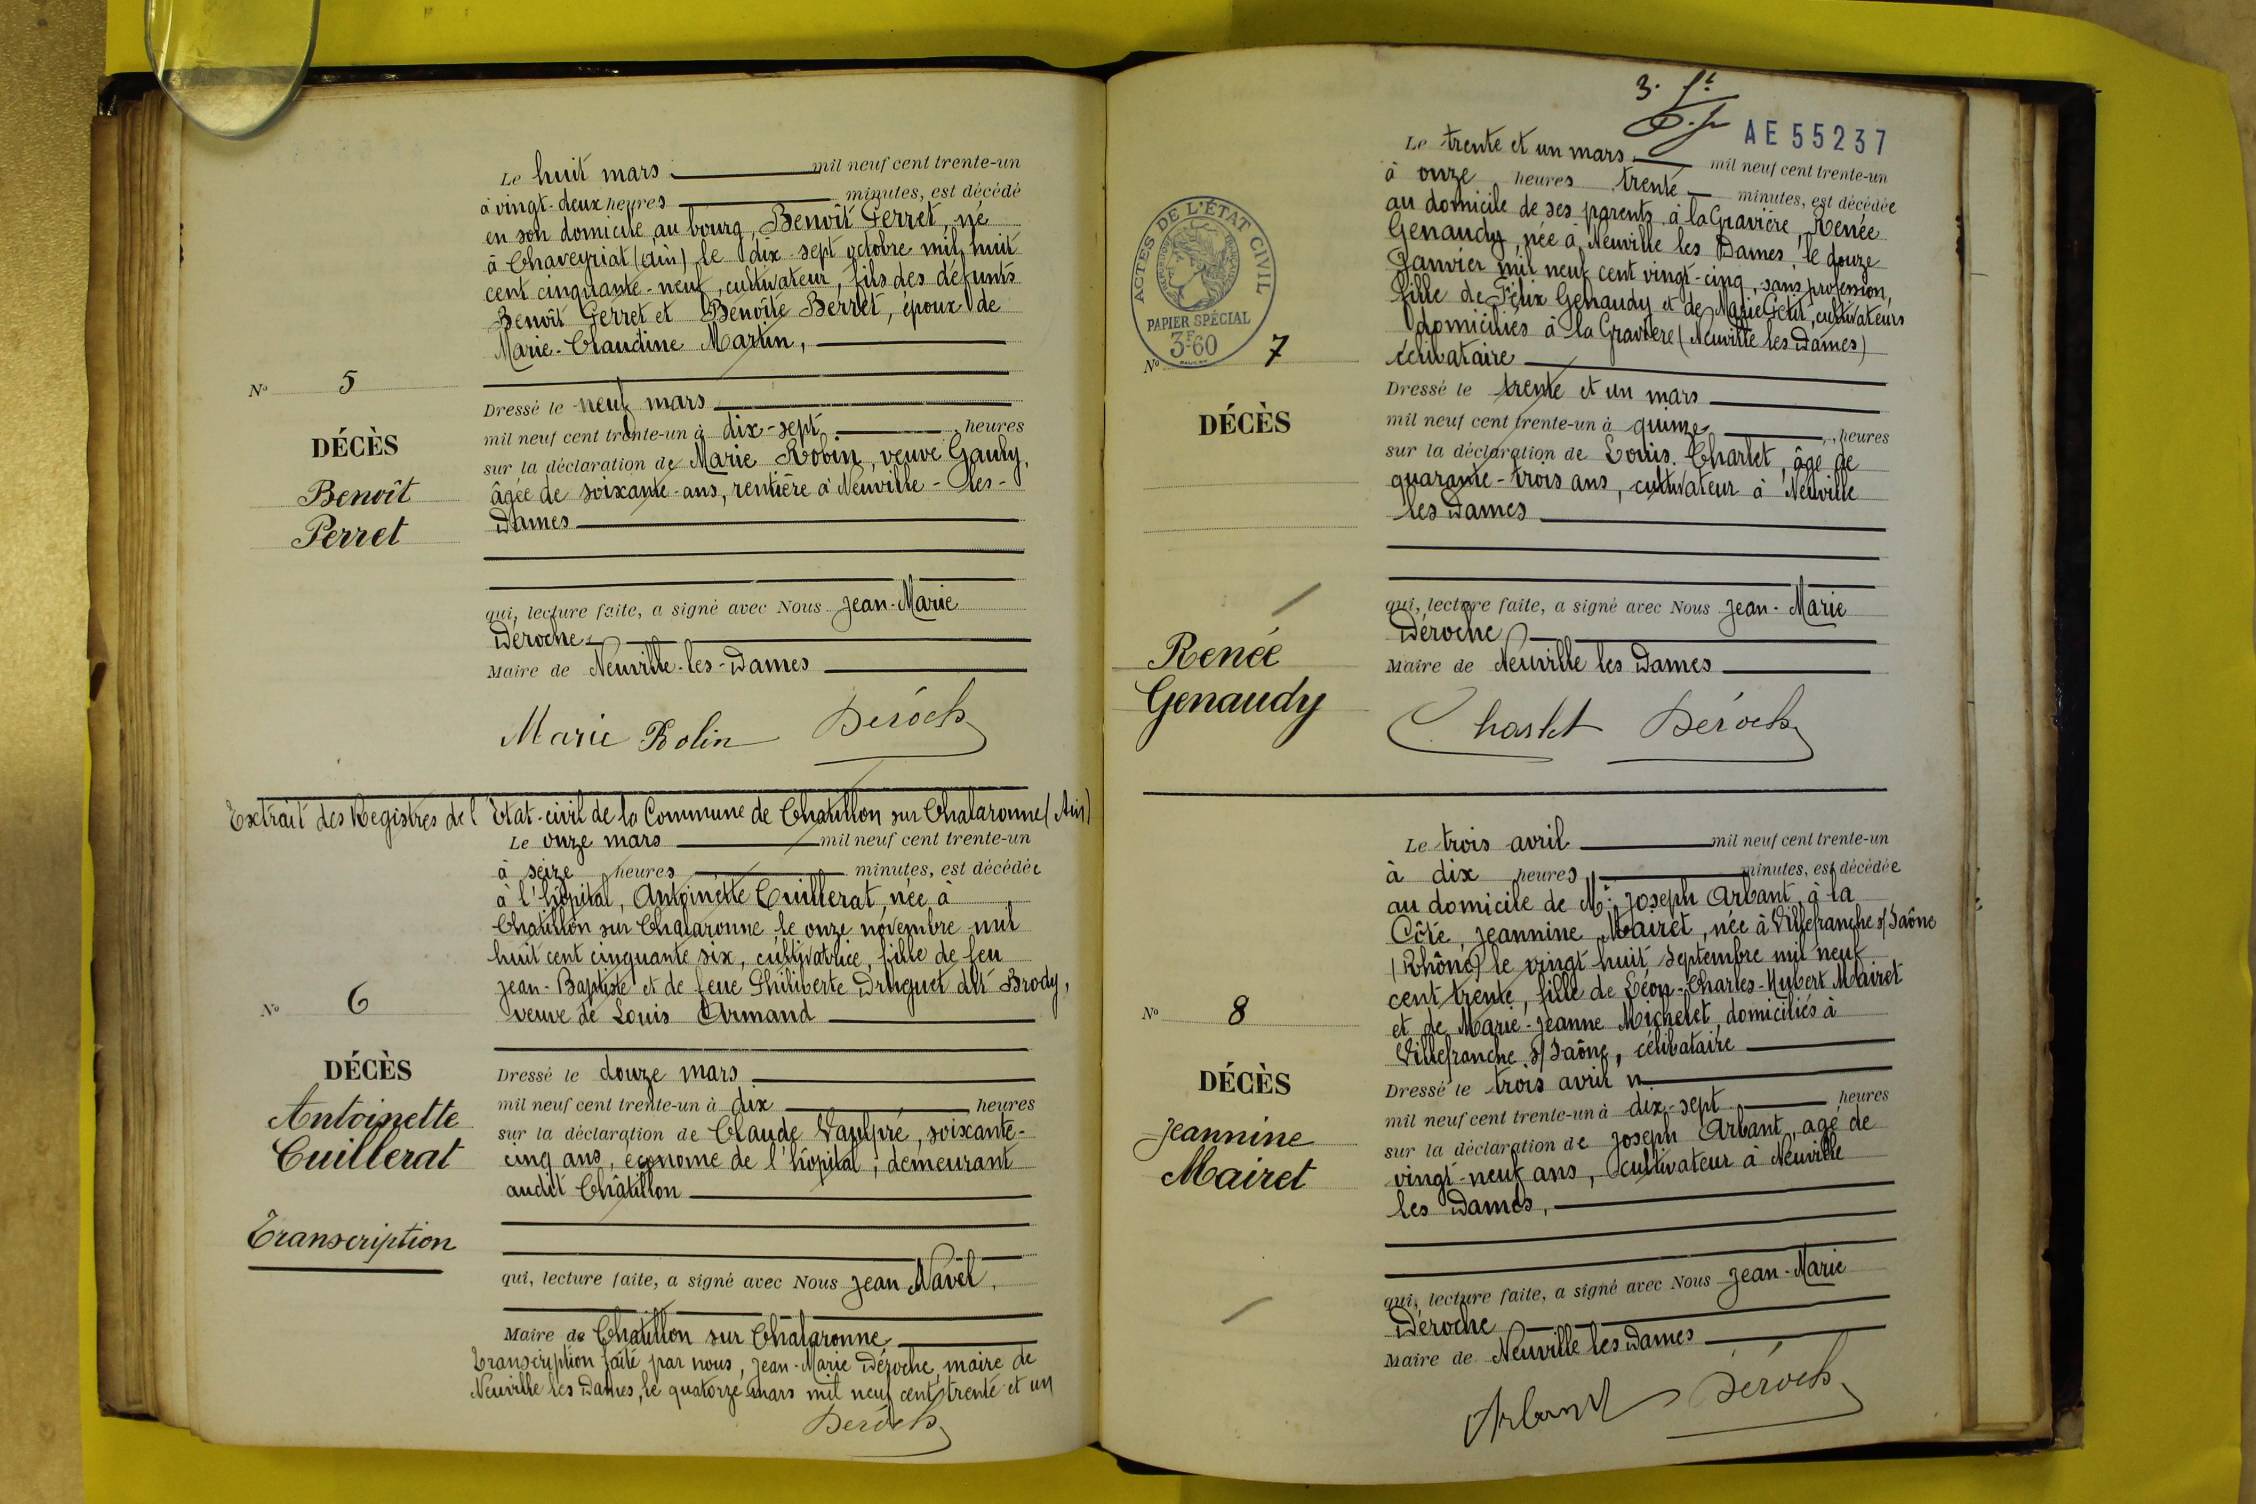 Le huit mars mil neuf cent trente-un
à vingt-deux heures minutes, est décédé
en son domicile, au bourg, Benoît Perret, né
à Chaveyriat (Ain) le dix-sept octobre mil huit
cent cinquante-neuf, cultivateur, fils des défunts
Benoît Perret et Benoîte Berret, époux de
Marie-Claudine Martin,
N° 5
DÉCÈS
Benoît
Perret
Dressé le neuf mars
mil neuf cent trente-un à dix-sept heures
sur la déclaration de Marie Robin, veuve
âgée de soixante-ans, rentière à Neuville-les-
Dames
qui, lecture faite, a signé avec Nous Jean-Marie
Déroche
Maire de Neuville-les-Dames
Marie Robin Déroche
Extrait des Registres de l'Etat-civil de la Commune de Chatillon sur Chalaronne (Ain)
Le onze mars mil neuf cent trente-un
à seize heures minutes, est décédée
à l'hôpital, Antoinette Cuillerat, née à
Chatillon sur Chalaronne, le onze novembre mil
huit cent cinquante six, cultivatrice, fille de feu
Jean-Baptiste et de feue Philiberte Druguet dit Brody,
veuve de Louis Armand
N° 6
DÉCÈS
Antoinette
Cuillerat
Transcription
Dressé le douze mars
mil neuf cent trente-un à dix heures
sur la déclaration de Claude Vaulpré, soixante-
cinq ans, économe de l'hôpital, demeurant
audit Châtillon
qui, lecture faite, a signé avec Nous Jean Navel,
Maire de Chatillon sur Chalaronne
Transcription faite par nous, Jean-Marie Déroche, maire de
Neuville les Dames, le quatorze mars mil neuf cent trente et un
Déroche
3.
AE 55237
Le trente et un mars mil neuf cent trente-un
à onze heures trente minutes, est décédée
au domicile de ses parents, à la Gravière, Renée
Genaudy, née à Neuville les Dames, le douze
Janvier mil neuf cent vingt-cinq, sans profession,
fille de Félix Genaudy et de Marie cultivateurs
domiciliés à la Gravière (Neuville les Dames)
célibataire
ACTES DE L'ÉTAT CIVIL
RÉPUBLIQUE FRANÇAISE
PAPIER SPÉCIAL
3F60
N° 7
DÉCÈS
Renée
Genaudy
Dressé le trente et un mars
mil neuf cent trente-un à quinze heures
sur la déclaration de Louis Charlet, âgé de
quarante-trois ans, cultivateur à Neuville
les Dames
qui, lecture faite, a signé avec Nous Jean-Marie
Déroche
Maire de Neuville les Dames
Charlet Déroche
Le trois avril mil neuf cent trente-un
à dix heures minutes, est décédée
au domicile de Mr Joseph Arbant, à la
Côte, Jeannine Mairet, née à Villefranche s/Saône
(Rhône) le vingt huit septembre mil neuf
cent trente, fille de Léon-Charles-Hubert Mairet
et de Marie-Jeanne Michelet, domiciliés à
Villefranche s/Saône, célibataire
N° 8
DÉCÈS
Jeannine
Mairet
Dressé le trois avril
mil neuf cent trente-un à dix-sept heures
sur la déclaration de Joseph Arbant, agé de
vingt-neuf ans, cultivateur à Neuville
les Dames,
qui, lecture faite, a signé avec Nous Jean-Marie
Déroche
Maire de Neuville les Dames
Arbant Déroche